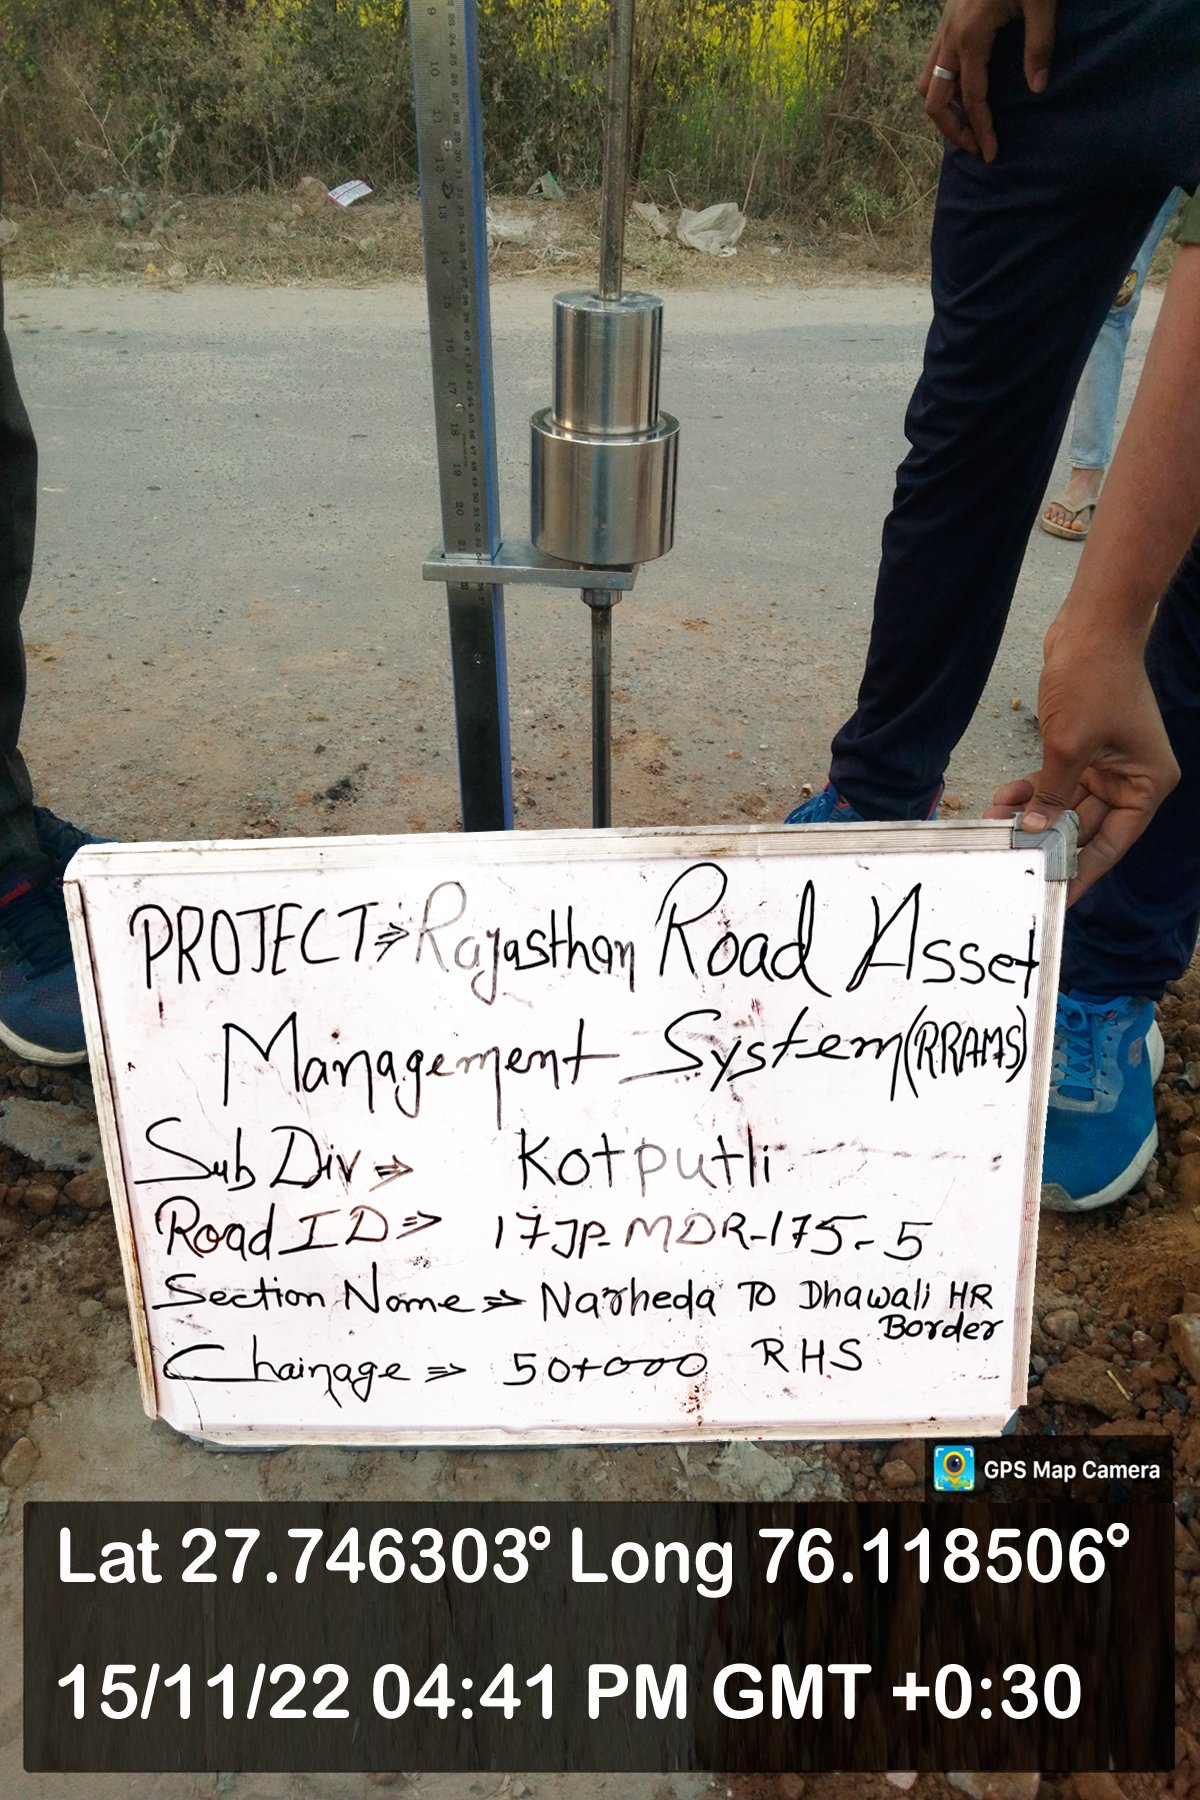 PROJECT⇒Rajasthan Road Asset
Management System(RRAMS)
Sub Div⇒ Kotputli
Road ID⇒ 17JP-MDR-175-5
Section Name⇒ Narheda TO Dhawali HR
Border
Chainage⇒ 50+000 RHS
GPS Map Camera
Lat 27.746303° Long 76.118506°
15/11/22 04:41 PM GMT +0:30